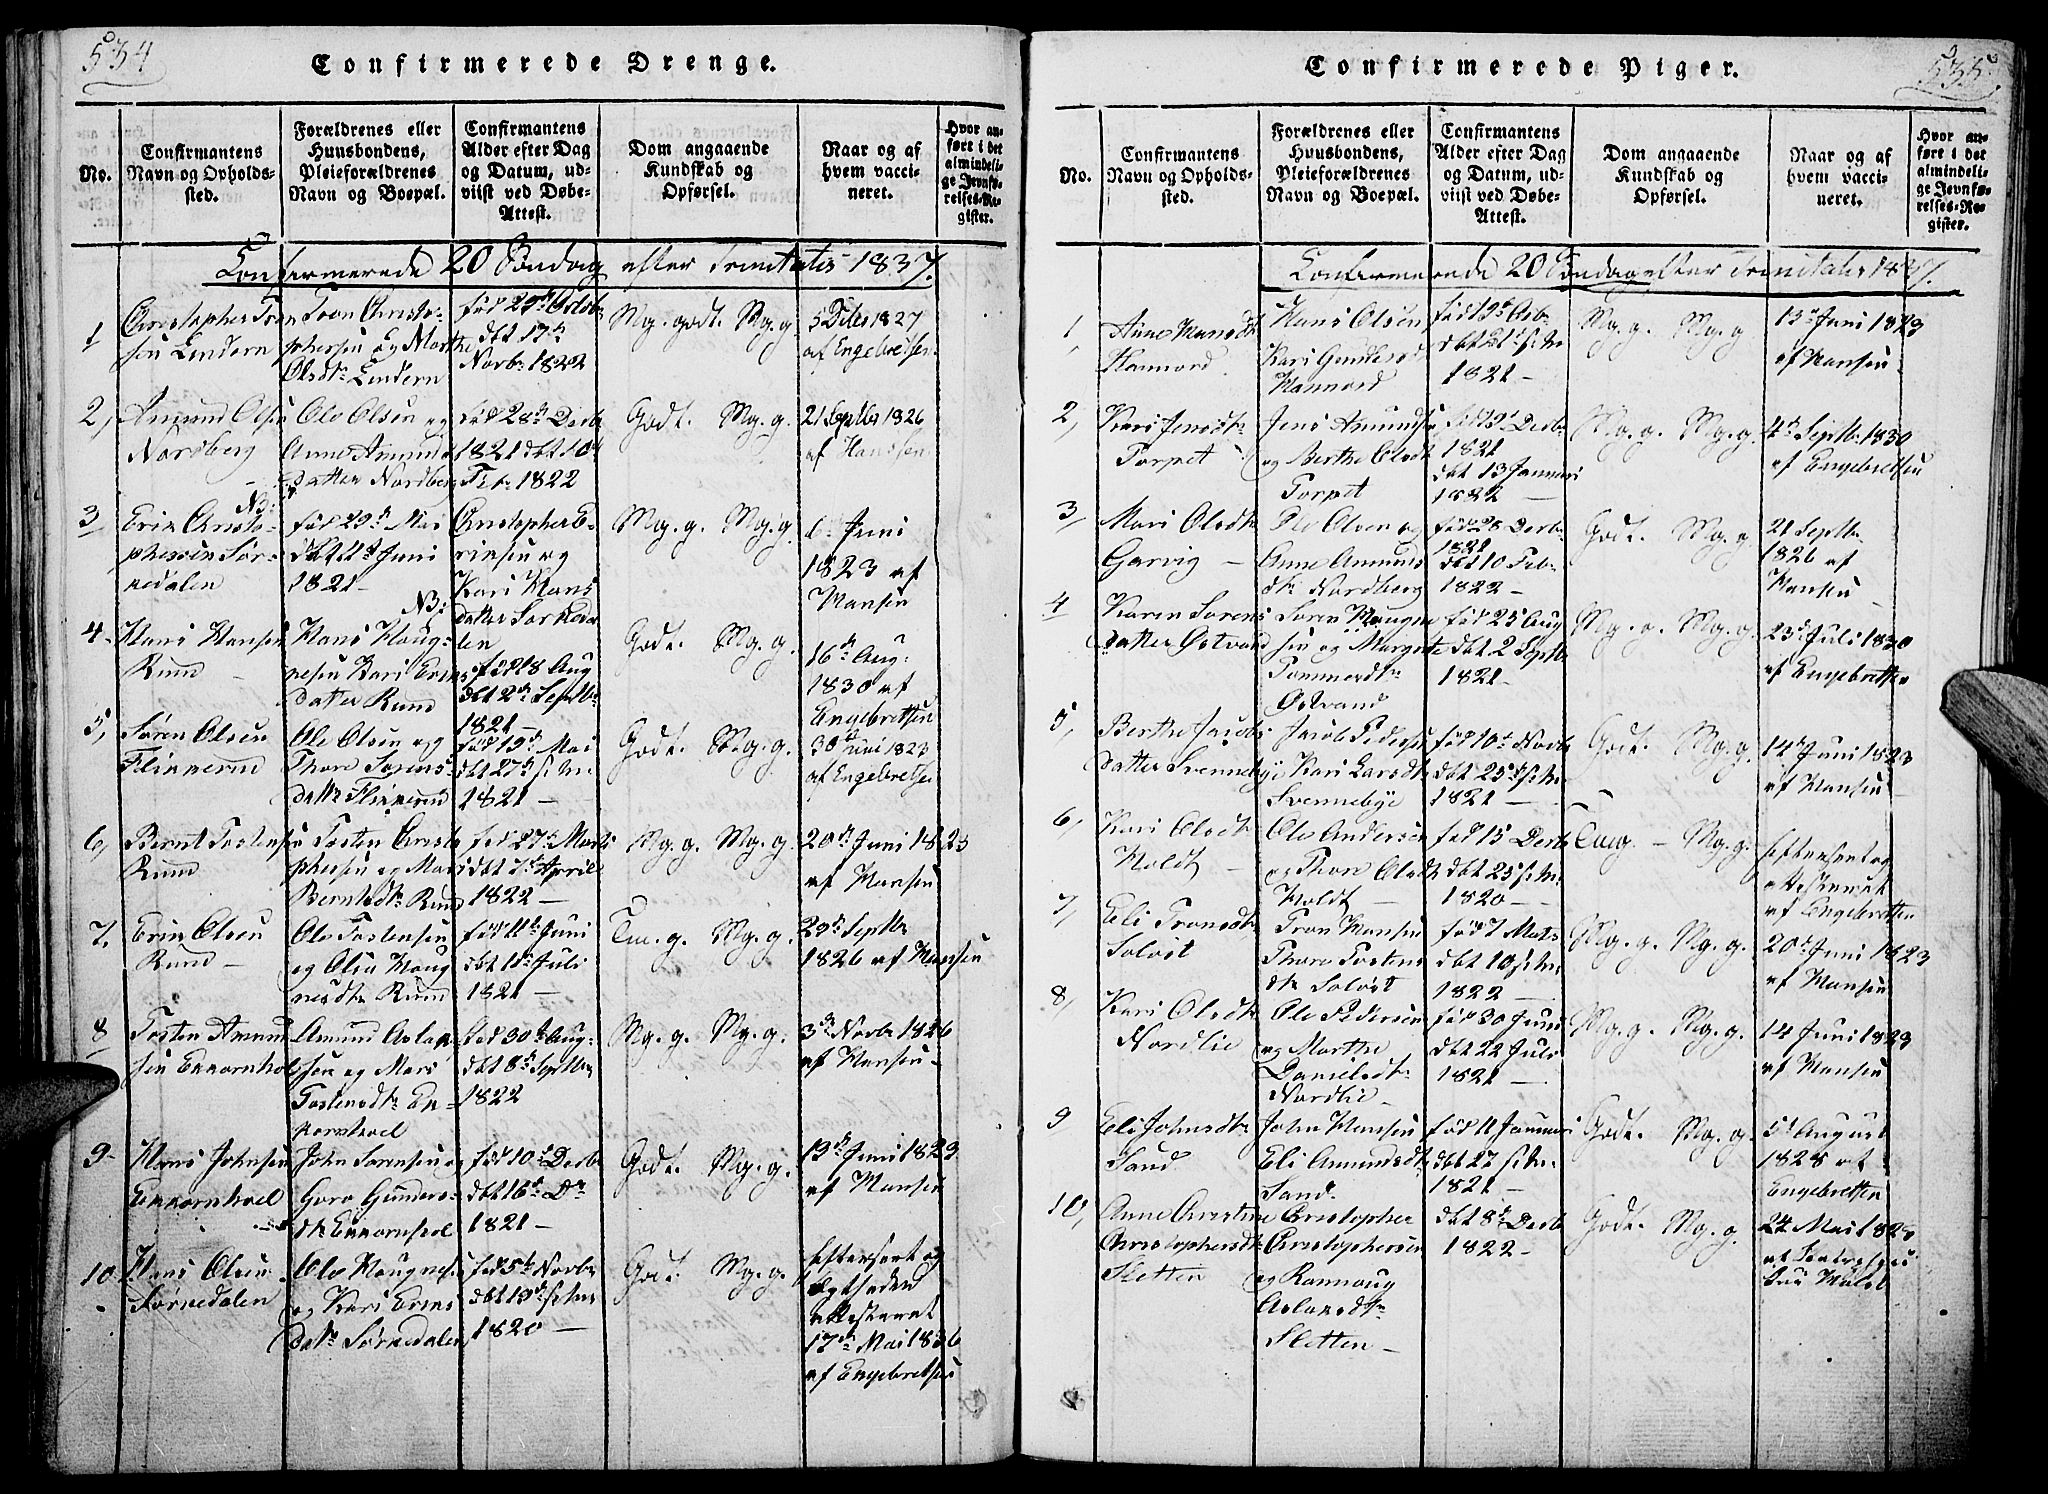 534
Confirmerede Drenge.
No.
Confirmantens Navn og Opholdssted.
Forældrenes eller Huusbondens, Pleieforældrenes Navn og Boepæl.
Confirmantens Alder efter Dag og Datum, udviist ved Døbe-Attest.
Dom angaaende Kundskab og Opførsel.
Naar og af hvem vaccineret.
Hvor anført i det almindelige Jevnførelses-Register.
Confirmerede 20 Søndag efter Trinitatis 1837.
1
Christopher Tronsen Lindern
Tron Christophersen og Marthe Olsdtr Lindern
fød 29de Octobr dbt 17de Novbr 1822
Mg. godt. Mg. g
5 Decbr 1827 af Engebretsen
2,
Amund Olsen Nordberg
Ole Olsen og Anne Amundsdatter Nordberg
fød 28de Decbr 1821 dbt 10de Febr 1822
Godt. Mg. g.
21 Septbr 1826 af Hanssen
3,
Erik Christophersen Sørkedalen
NB:
fød 29de Mai dbt 11te Juni 1821
Christopher Eriksen og Kari Hansdatter Sørkedalen
Mg. g. Mg. g
6te Juni 1823 af Hansen
4
Hans Hansen Ruud
NB:
Hans Haugnesen Kari Eriksdatter Ruud
fød 28 Aug dbt 2den Septbr 1821
Godt. Mg. g.
16de Aug: 1830 af Engebretsen
5,
Søren Olsen Flikkerud
Ole Olsen og Thore Sørensdattr Flikkerud
fød 19de Mai dbt 27de s: M. 1821
Godt. Mg. g.
30 Juni 1823 af Engebretsen
6,
Bernt Tostensen Ruud
Tosten Christophersen og Mari Berntsdtr Ruud
fød 27de Marts dbt 7de April 1822
Mg. g. Mg. g.
20de Juni 1823 af Hansen
7.
Erik Olsen Ruud
Ole Tostensen og Olia Haugnesdtr Ruud
fød 11te Juni dbt 15de Juli 1821
Tm. g. Mg. g.
29de Septbr 1826 af Hansen
8
Tosten Amundsen Ekkornhol
Amund Aslaksen og Mari Tostensdtr Ekkornhoel
fød 30te Aug: dbt 8de Septbr 1822
Mg. g. Mg. g.
3de Novbr 1826 af Hansen
9
Hans Johnsen Ekkornhoel
John Sørensen og Goro Gundersdtr Ekkornhoel
fød 10de Decbr dbt 16de D. 1821
Godt. Mg. g.
13de Juni 1823 af Hansen
10
Hans Olsen Sørkedalen
Ole Haugnesen og Kari Eriksdattr Sørkedalen
fød 5te Novbr dbt 19de s: M. 1820
Godt. Mg. g.
Efterseet og Ægtheden attesteret 17de Mai 1836 af Engebretsen
535.
Confirmerede Piger.
No.
Confirmantens Navn og Opholdssted.
Forældrenes eller Huusbondens, Pleieforældrenes Navn og Boepæl.
Confirmantens Alder efter Dag og Datum, udviist ved Døbe-Attest.
Dom angaaende Kundskab og Opførsel.
Naar og af hvem vaccineret.
Hvor anført i det almindelige Jevnførelses-Register.
Confirmerede 20 Søndag efter Trinitatis 1837.
1,
Anne Hansdtr Hannord
Hans Olsen Kari Gundersdtr Hannord
Mg. g. Mg. g
13de Juni 1823 af Hansen
2,
Kari Jensdtr Torpet
Jens Amundsen og Berthe Olsdtr Torpet
fød 19de Decbr 1821 dbt 13 Januari 1822
Mg. g. Mg. g.
4de Septbr 1830 af Engebretsen
3,
Mari Olsdtr Garvig
Ole Olsen og Anne Amundsdtr Nordberg
fød 28 Decbr 1821 dbt 10 Feb 1822
Godt. Mg. g
21 Septbr 1826 af Hansen
4
Karen Sørensdatter Østvand
Søren Haugnesen og Margrete Tommesdtr Østvand
fød 25 Aug dbt 2 Septbr 1821
Mg. g. Mg. g.
23de Juli 1830 af Engebretsen
5,
Berthe Jacobsdatter Svennebye
Jacob Pedersen Kari Larsdtr Svennebye
fød 10de Novbr dbt 25de s: M. 1821
Godt. Mg. g.
14de Juni 1823 af Hansen
6,
Kari Olsdtr Holdt
Ole Andersen og Thore Olsdtr Holdt
fød 15 Decbr dbt 25 s: M. 1820
Tmg. Mg. g.
Efterseet og attesteret af Engebretsen
7,
Eli Tronsdtr Soløst
Tron Hansen Thore Tostensdtr Soløst
fød 7 Mats dbt 10 s: M. 1822
Mg. g. Mg. g.
20de Juni 1823 af Hansen
8,
Kari Olsdtr Nordlie
Ole Pedersen og Marthe Danielsdtr Nordlie
fød 30 Juni dbt 22 Juli 1821
Mg. g. Mg. g.
14 Juni 1823 af Hansen
9
Eli Johnsdtr Sand
John Hansen Eli Amundsdtr Sand.
fød 11 Januari dbt 27 s: M. 1821
Godt. Mg. g.
5te August 1828 af Engebretsen
10,
Anne Christine Christophersdtr Sletten
Christopher Christophersen og Rannoug Aslaksdtr Sletten
dbt 8de Decbr 1822
Godt. Mg. g.